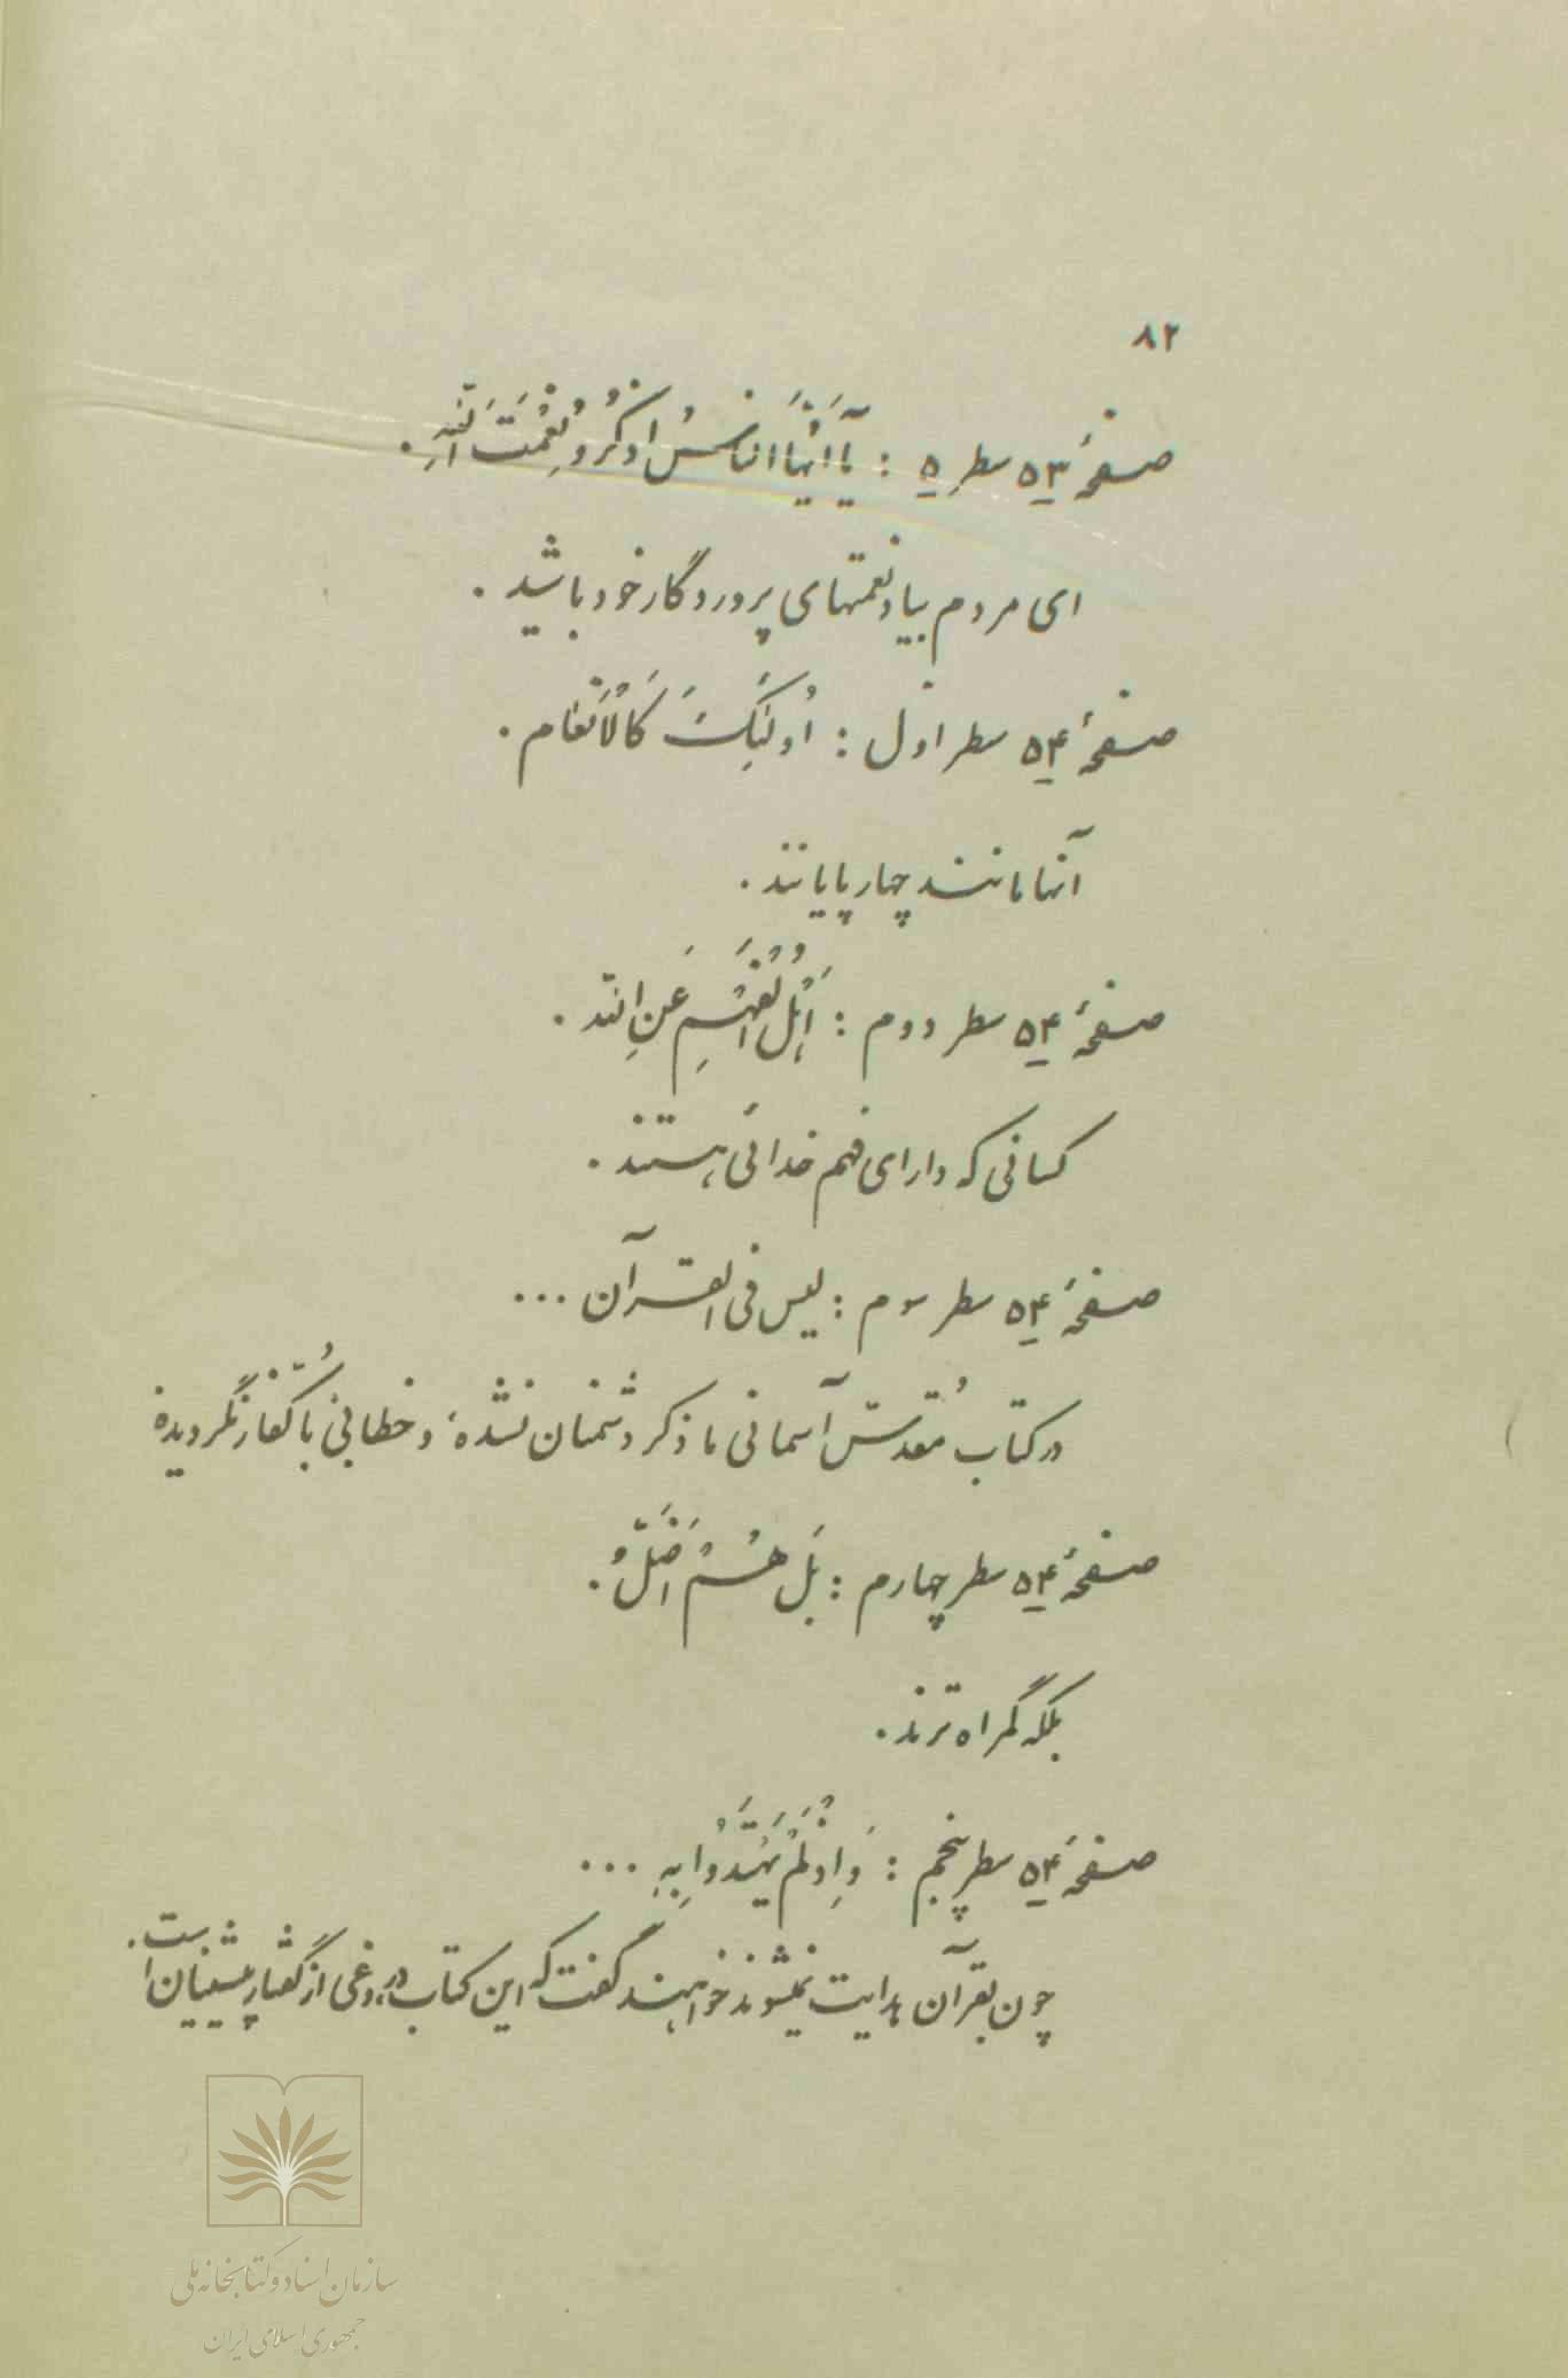 ۸۲
صفحهٔ ۵۳ سطر ۵ : يآ اَيُّهَا النّاسُ اذْكُرُو نِعْمَتَ اللّهِ .
ای مردم بیاد نعمتهای پروردگار خود باشید .
صفحهٔ ۵۴ سطر اول : اُولئِكَ كَالْاَنْعام .
آنها مانند چهارپایانند .
صفحهٔ ۵۴ سطر دوم : اَهْلُ الْفَهْمِ عَنِ اللّه .
کسانی که دارای فهم خدائی هستند .
صفحهٔ ۵۴ سطر سوم : لیس فی القرآن ...
در کتاب مُقدسّ آسمانی ما ذکر دشمنان نشده و خطابی با کُفّار نگردیده
صفحهٔ ۵۴ سطر چهارم : بَل هُمْ اَضَلُّ .
بلکه گمراه ترند .
صفحهٔ ۵۴ سطر پنجم : وَ اِذْ لَمْ يَهْتَدُوا بِهِ ...
چون بقرآن هدایت نمیشوند خواهند گفت که این کتاب دروغی از گفتار پیشینیان است .
سازمان اسناد و کتابخانه ملی
جمهوری اسلامی ایران